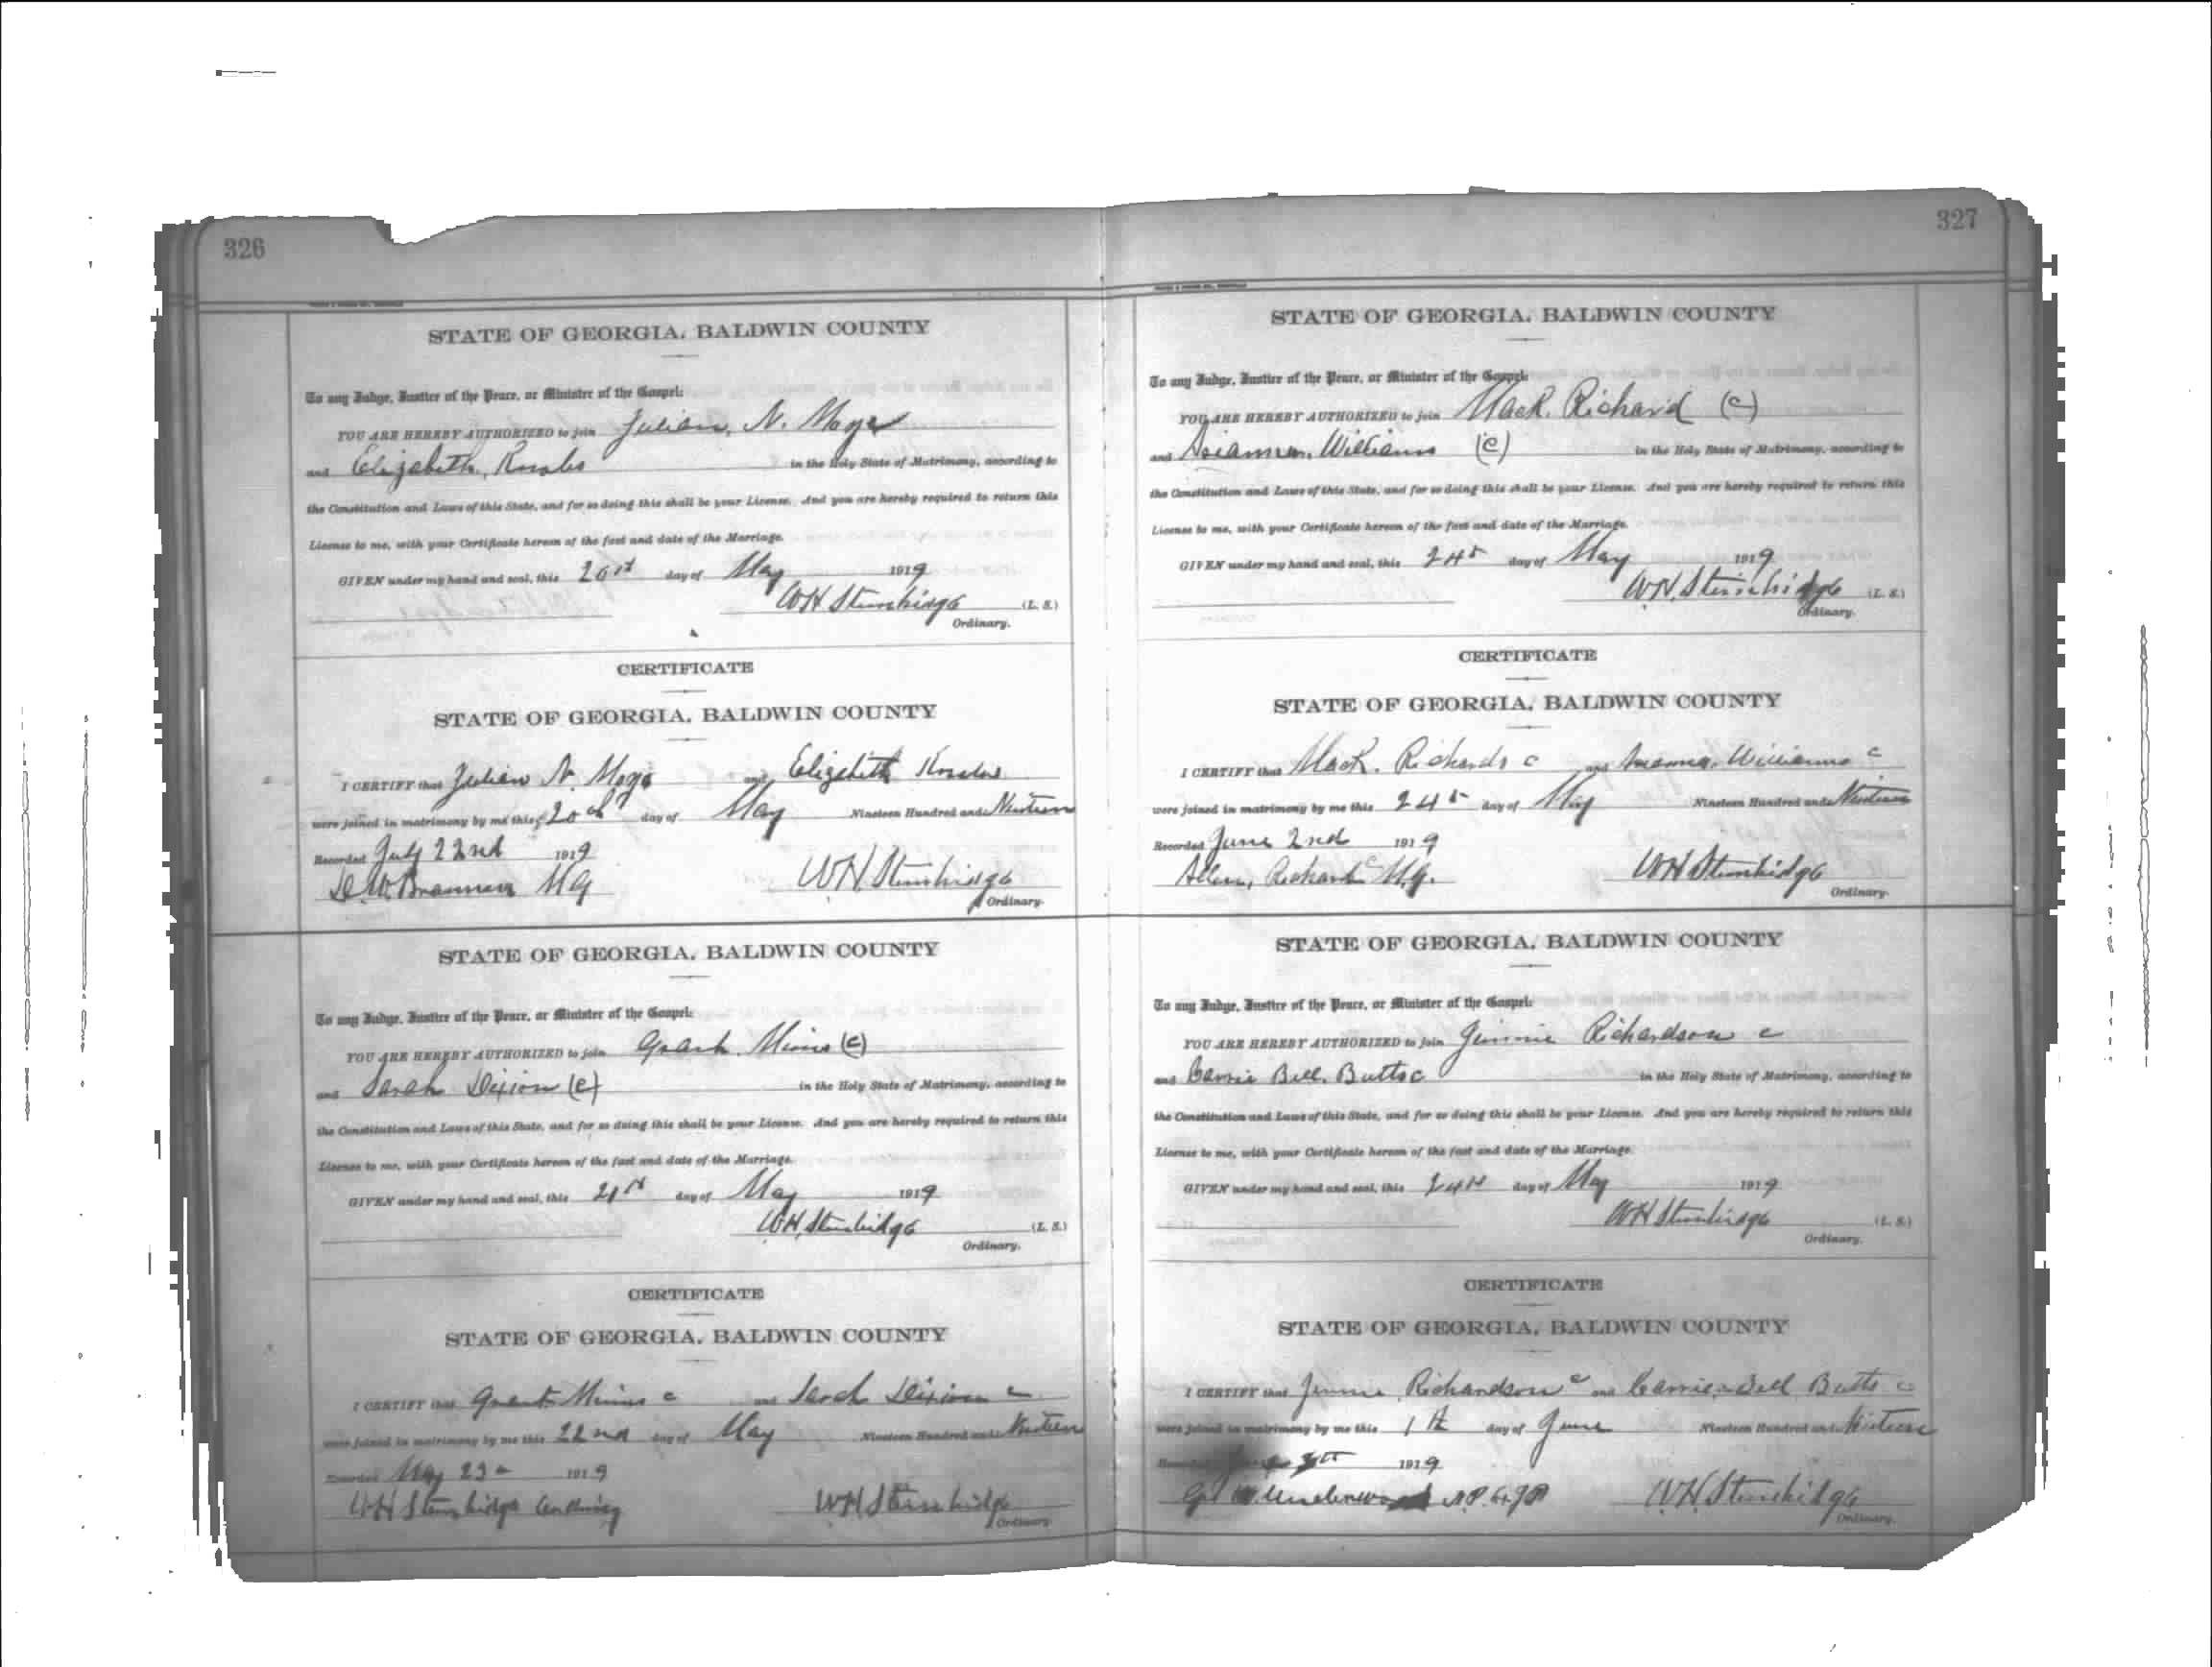 326
STATE OF GEORGIA, BALDWIN COUNTY
To any Judge, Justice of the Peace, or Minister of the Gospel:
YOU ARE HEREBY AUTHORIZED to join Julian, N. Moye
and Elizabeth, in the Holy State of Matrimony, according to
the Constitution and Laws of this State, and for so doing this shall be your License. And you are hereby required to return this
License to me, with your Certificate hereon of the fact and date of the Marriage.
GIVEN under my hand and seal, this day of May 1919
WH Stembridge (L. S.)
Ordinary.
CERTIFICATE
STATE OF GEORGIA, BALDWIN COUNTY
I CERTIFY that Julian N. Moye and Elizabeth
were joined in matrimony by me this 20th day of May Nineteen Hundred and Nineteen
Recorded July 22nd 1919
Brannen MG WH Stembridge
Ordinary.
STATE OF GEORGIA, BALDWIN COUNTY
To any Judge, Justice of the Peace, or Minister of the Gospel:
YOU ARE HEREBY AUTHORIZED to join Grant Mims (C)
and Sarah Dixion (C) in the Holy State of Matrimony, according to
the Constitution and Laws of this State, and for so doing this shall be your License. And you are hereby required to return this
License to me, with your Certificate hereon of the fact and date of the Marriage.
GIVEN under my hand and seal, this 21st day of May 1919
WH, Stembridge (L. S.)
Ordinary.
CERTIFICATE
STATE OF GEORGIA, BALDWIN COUNTY
I CERTIFY that Grant Mims c and Sarah Dixion c
were joined in matrimony by me this 22nd day of May Nineteen Hundred and Nineteen
Recorded May 23 1919
WH Stembridge Ordinary WH Stembridge
Ordinary.
327
STATE OF GEORGIA, BALDWIN COUNTY
To any Judge, Justice of the Peace, or Minister of the Gospel:
YOU ARE HEREBY AUTHORIZED to join Mack. Richard (C)
and Williams (C) in the Holy State of Matrimony, according to
the Constitution and Laws of this State, and for so doing this shall be your License. And you are hereby required to return this
License to me, with your Certificate hereon of the fact and date of the Marriage.
GIVEN under my hand and seal, this 24 day of May 1919
WH, Stembridge (L. S.)
Ordinary.
CERTIFICATE
STATE OF GEORGIA, BALDWIN COUNTY
I CERTIFY that Mack. Richards c and Williams c
were joined in matrimony by me this 24 day of May Nineteen Hundred and Nineteen
Recorded June 2nd 1919
Allen, M.G. WH Stembridge
Ordinary.
STATE OF GEORGIA, BALDWIN COUNTY
To any Judge, Justice of the Peace, or Minister of the Gospel:
YOU ARE HEREBY AUTHORIZED to join Jimmie Richardson c
and Carrie Bell. Butts c in the Holy State of Matrimony, according to
the Constitution and Laws of this State, and for so doing this shall be your License. And you are hereby required to return this
License to me, with your Certificate hereon of the fact and date of the Marriage.
GIVEN under my hand and seal, this 24th day of May 1919
WH Stembridge (L. S.)
Ordinary.
CERTIFICATE
STATE OF GEORGIA, BALDWIN COUNTY
I CERTIFY that Jimmie, Richardson c and Carrie Bell Butts c
were joined in matrimony by me this 1st day of June Nineteen Hundred and Nineteen
1919
Underwood N.P. & J P WH Stembridge
Ordinary.